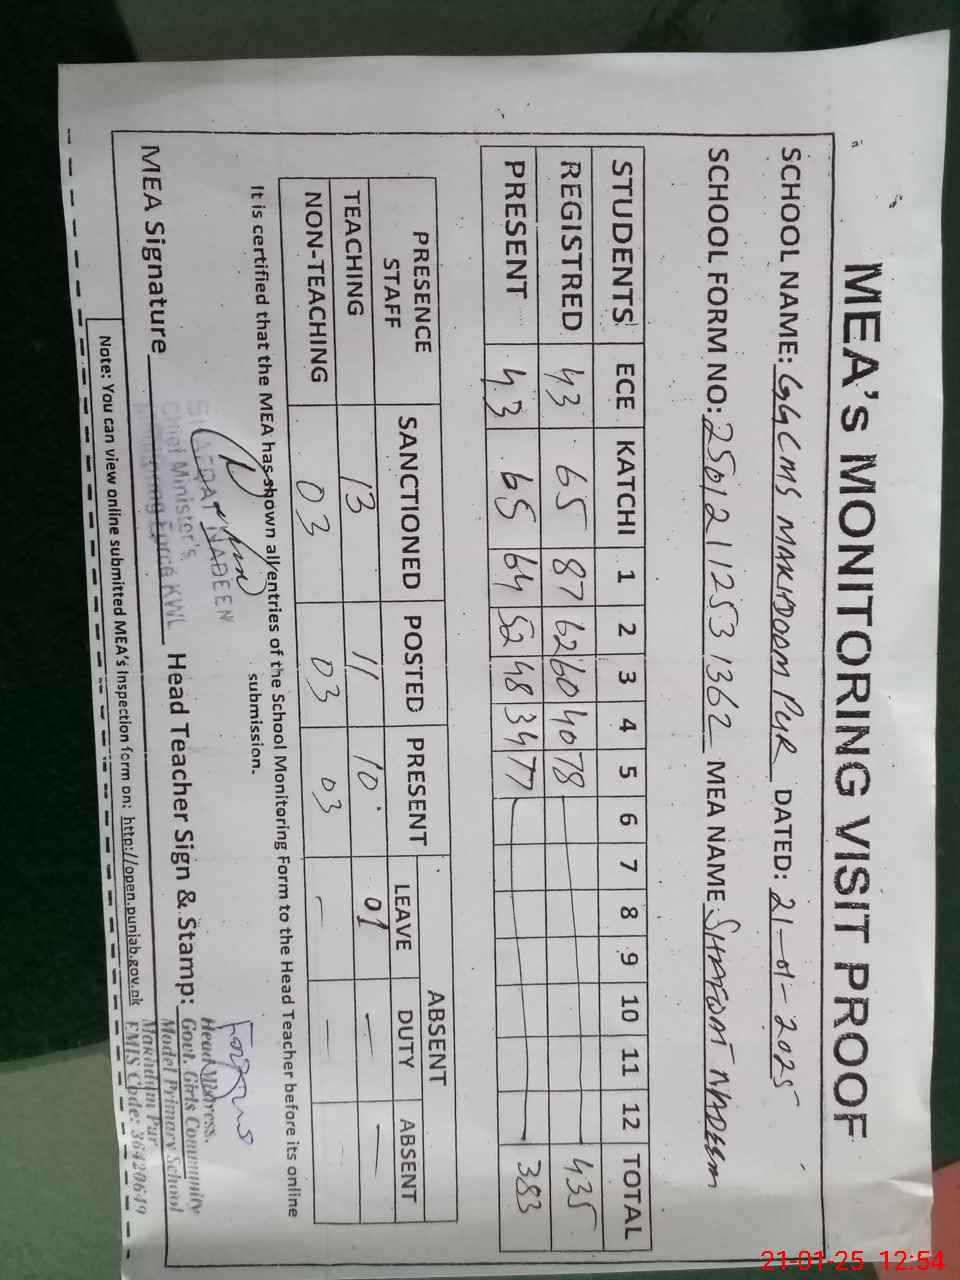 MEA's MONITORING VISIT PROOF
SCHOOL NAME: GGCMS MAKHDOOM PUR DATED: 21-01-2025
SCHOOL FORM NO: 25012112531362 MEA NAME SHAFQAT NADEEM
STUDENTS ECE KATCHI 1 2 3 4 5 6 7 8 9 10 11 12 TOTAL
REGISTRED 43 65 87 62 60 40 78 435
PRESENT 43 65 64 52 48 34 77 383
PRESENCE STAFF SANCTIONED POSTED PRESENT ABSENT
LEAVE DUTY ABSENT
TEACHING 13 11 10 01 — —
NON-TEACHING 03 03 03 — — —
It is certified that the MEA has shown all entries of the School Monitoring Form to the Head Teacher before its online
submission.
SHAFQAT NADEEN
Chief Minister's
Monitoring Force KWL
MEA Signature Head Teacher Sign & Stamp:
Headmistress.
Govt. Girls Community
Model Primary School
Makhdum Pur
EMIS Code: 36420649
Note: You can view online submitted MEA's Inspection form on: http://open.punjab.gov.pk
21-01-25 12:54